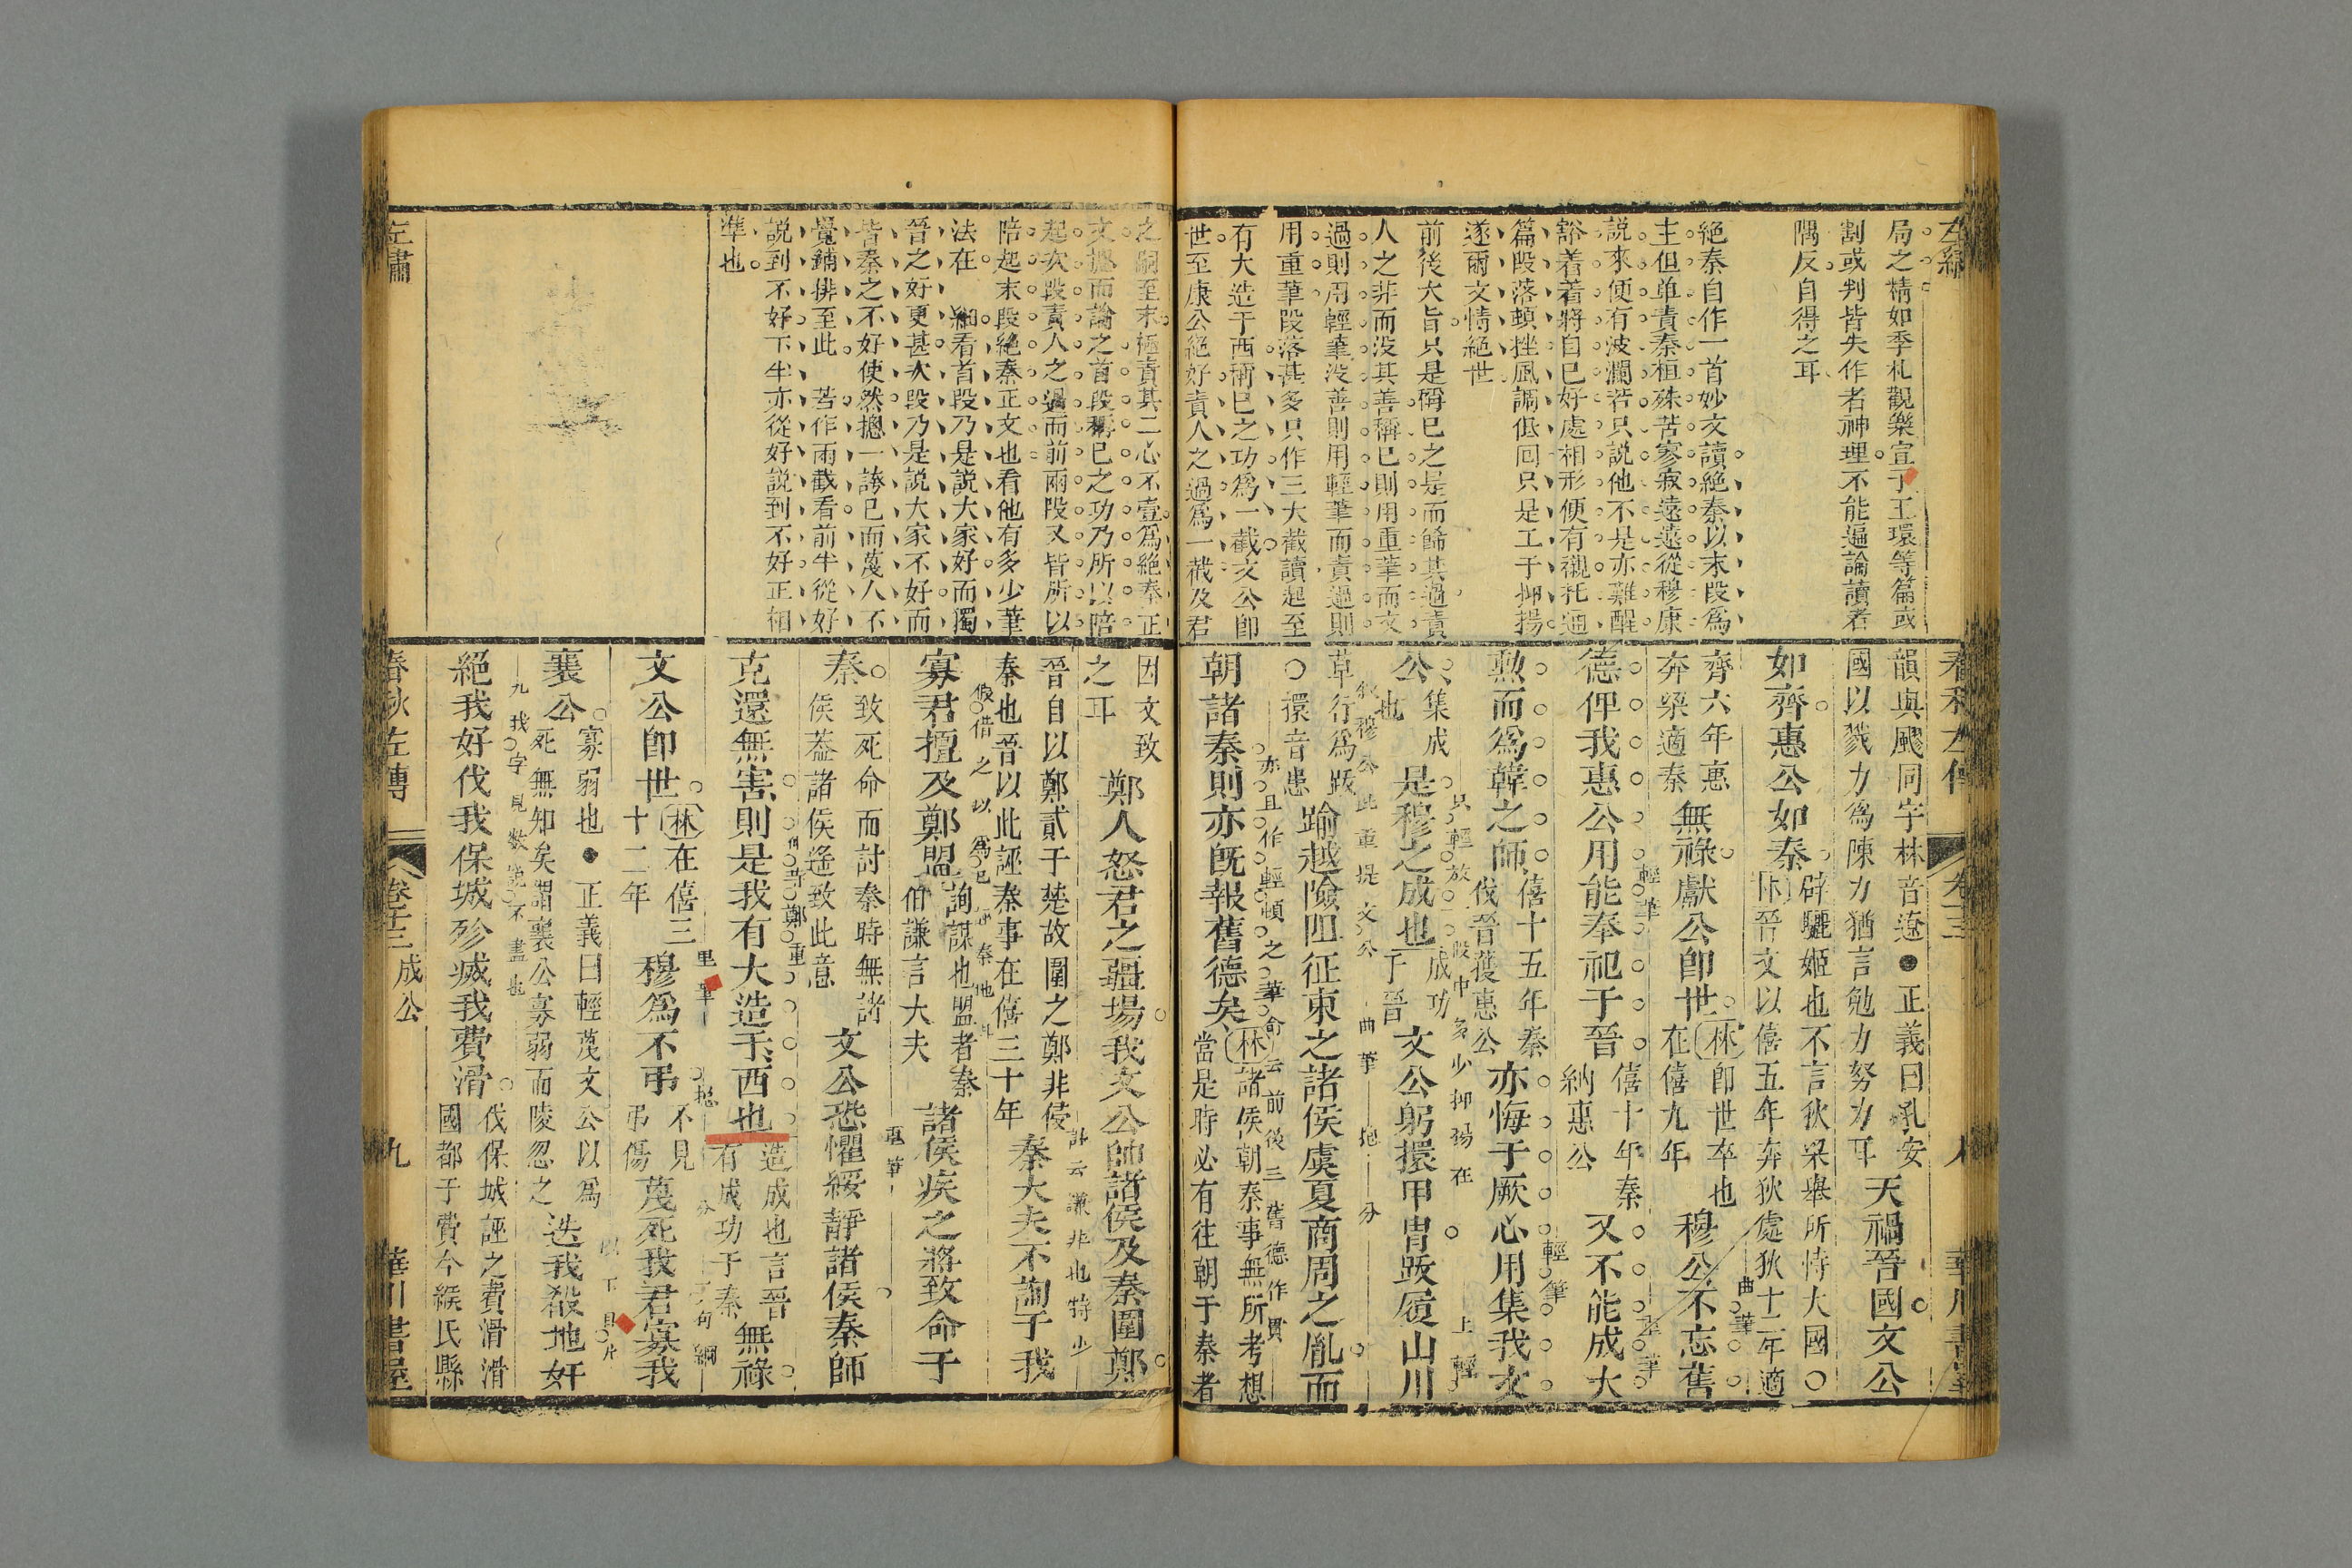 局之精如季札觀樂宣子玉環等篇或
割或判皆失作者神理不能遍論讀者
隅反自得之耳
絕秦自作一首妙文讀絕秦以末段爲
主但单責秦桓殊苦寥寂遠遠從穆康
說來便有波瀾若只說他不是亦難醒
豁着着將自已好處相形便有襯托通
篇段落頓挫風調低回只是工于抑揚
遂爾文情絕世
前後大旨只是稱已之是而飾其過責
人之非而没其善稱已則用重筆而文
過則用輕筆没善則用輕筆而責過則
用重筆段落甚多只作三大截讀起至
有大造于西稱已之功爲一截文公卽
世至康公絕好責人之過爲一截及君
韻與飂同字林音遼●正義曰孔安
國以戮力爲陳力猶言勉力努力耳
天禍晉國文公
如齊惠公如秦
辟驪姬也不言狄梁舉所恃大國○
林晉文以僖五年奔狄處狄十二年適
齊六年惠
奔梁適秦
無祿獻公卽世
林卽世卒也
在僖九年
穆公不忘舊
德俾我惠公用能奉祀于晉
僖十年秦
納惠公
又不能成大
勲而爲韓之師
僖十五年秦
伐晉獲惠公
亦悔于厥心用集我文
公
集成
也
是穆之成也
成功
于晉
文公躬擐甲胄跋履山川
草行爲跋
○擐音患
踰越險阻征東之諸侯虞夏商周之胤而
朝諸秦則亦旣報舊德矣
林諸侯朝秦事無所考想
當是時必有往朝于秦者
春秋左傳
八
之嗣至末極責其二心不壹爲絕秦正
文摠而論之首段稱已之功乃所以陪
起次段責人之過而前兩段又皆所以
陪起末段絕秦正文也看他有多少筆
法在 細看首段乃是說大家好而獨
晉之好更甚次段乃是說大家不好而
皆秦之不好使然摠一誇已而蔑人不
覺鋪排至此 若作兩截看前半從好
說到不好下半亦從好說到不好正相
準也
因文致
之耳
鄭人怒君之疆埸我文公帥諸侯及秦圍鄭
晉自以鄭貳于楚故圍之鄭非侵
秦也晉以此誣秦事在僖三十年
秦大夫不詢于我
寡君擅及鄭盟
詢謀也盟者秦
伯謙言大夫
諸侯疾之將致命于
秦
致死命而討秦時無諸
侯葢諸侯遙致此意
文公恐懼綏靜諸侯秦師
克還無害則是我有大造于西也
造成也言晉
有成功于秦
無祿
文公卽世
林在僖三
十二年
穆爲不弔
不見
弔傷
蔑死我君寡我
襄公
寡弱也●正義曰輕蔑文公以爲
死無知矣謂襄公寡弱而陵忽之
迭我殽地奸
絕我好伐我保城殄滅我費滑
伐保城誣之費滑滑
國都于費今緱氏縣
春秋左傳
卷十三 成公
九
華川書屋